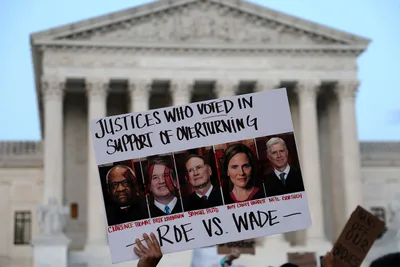 JUSTICES WHO VOTED IN
SUPPORT OF OVERTURNING
CLARENCE THOMAS BRETT KAVANAUGH SAMUEL ALITO AMY CONEY BARRETT NEIL GORSUCH
ROE VS. WADE —